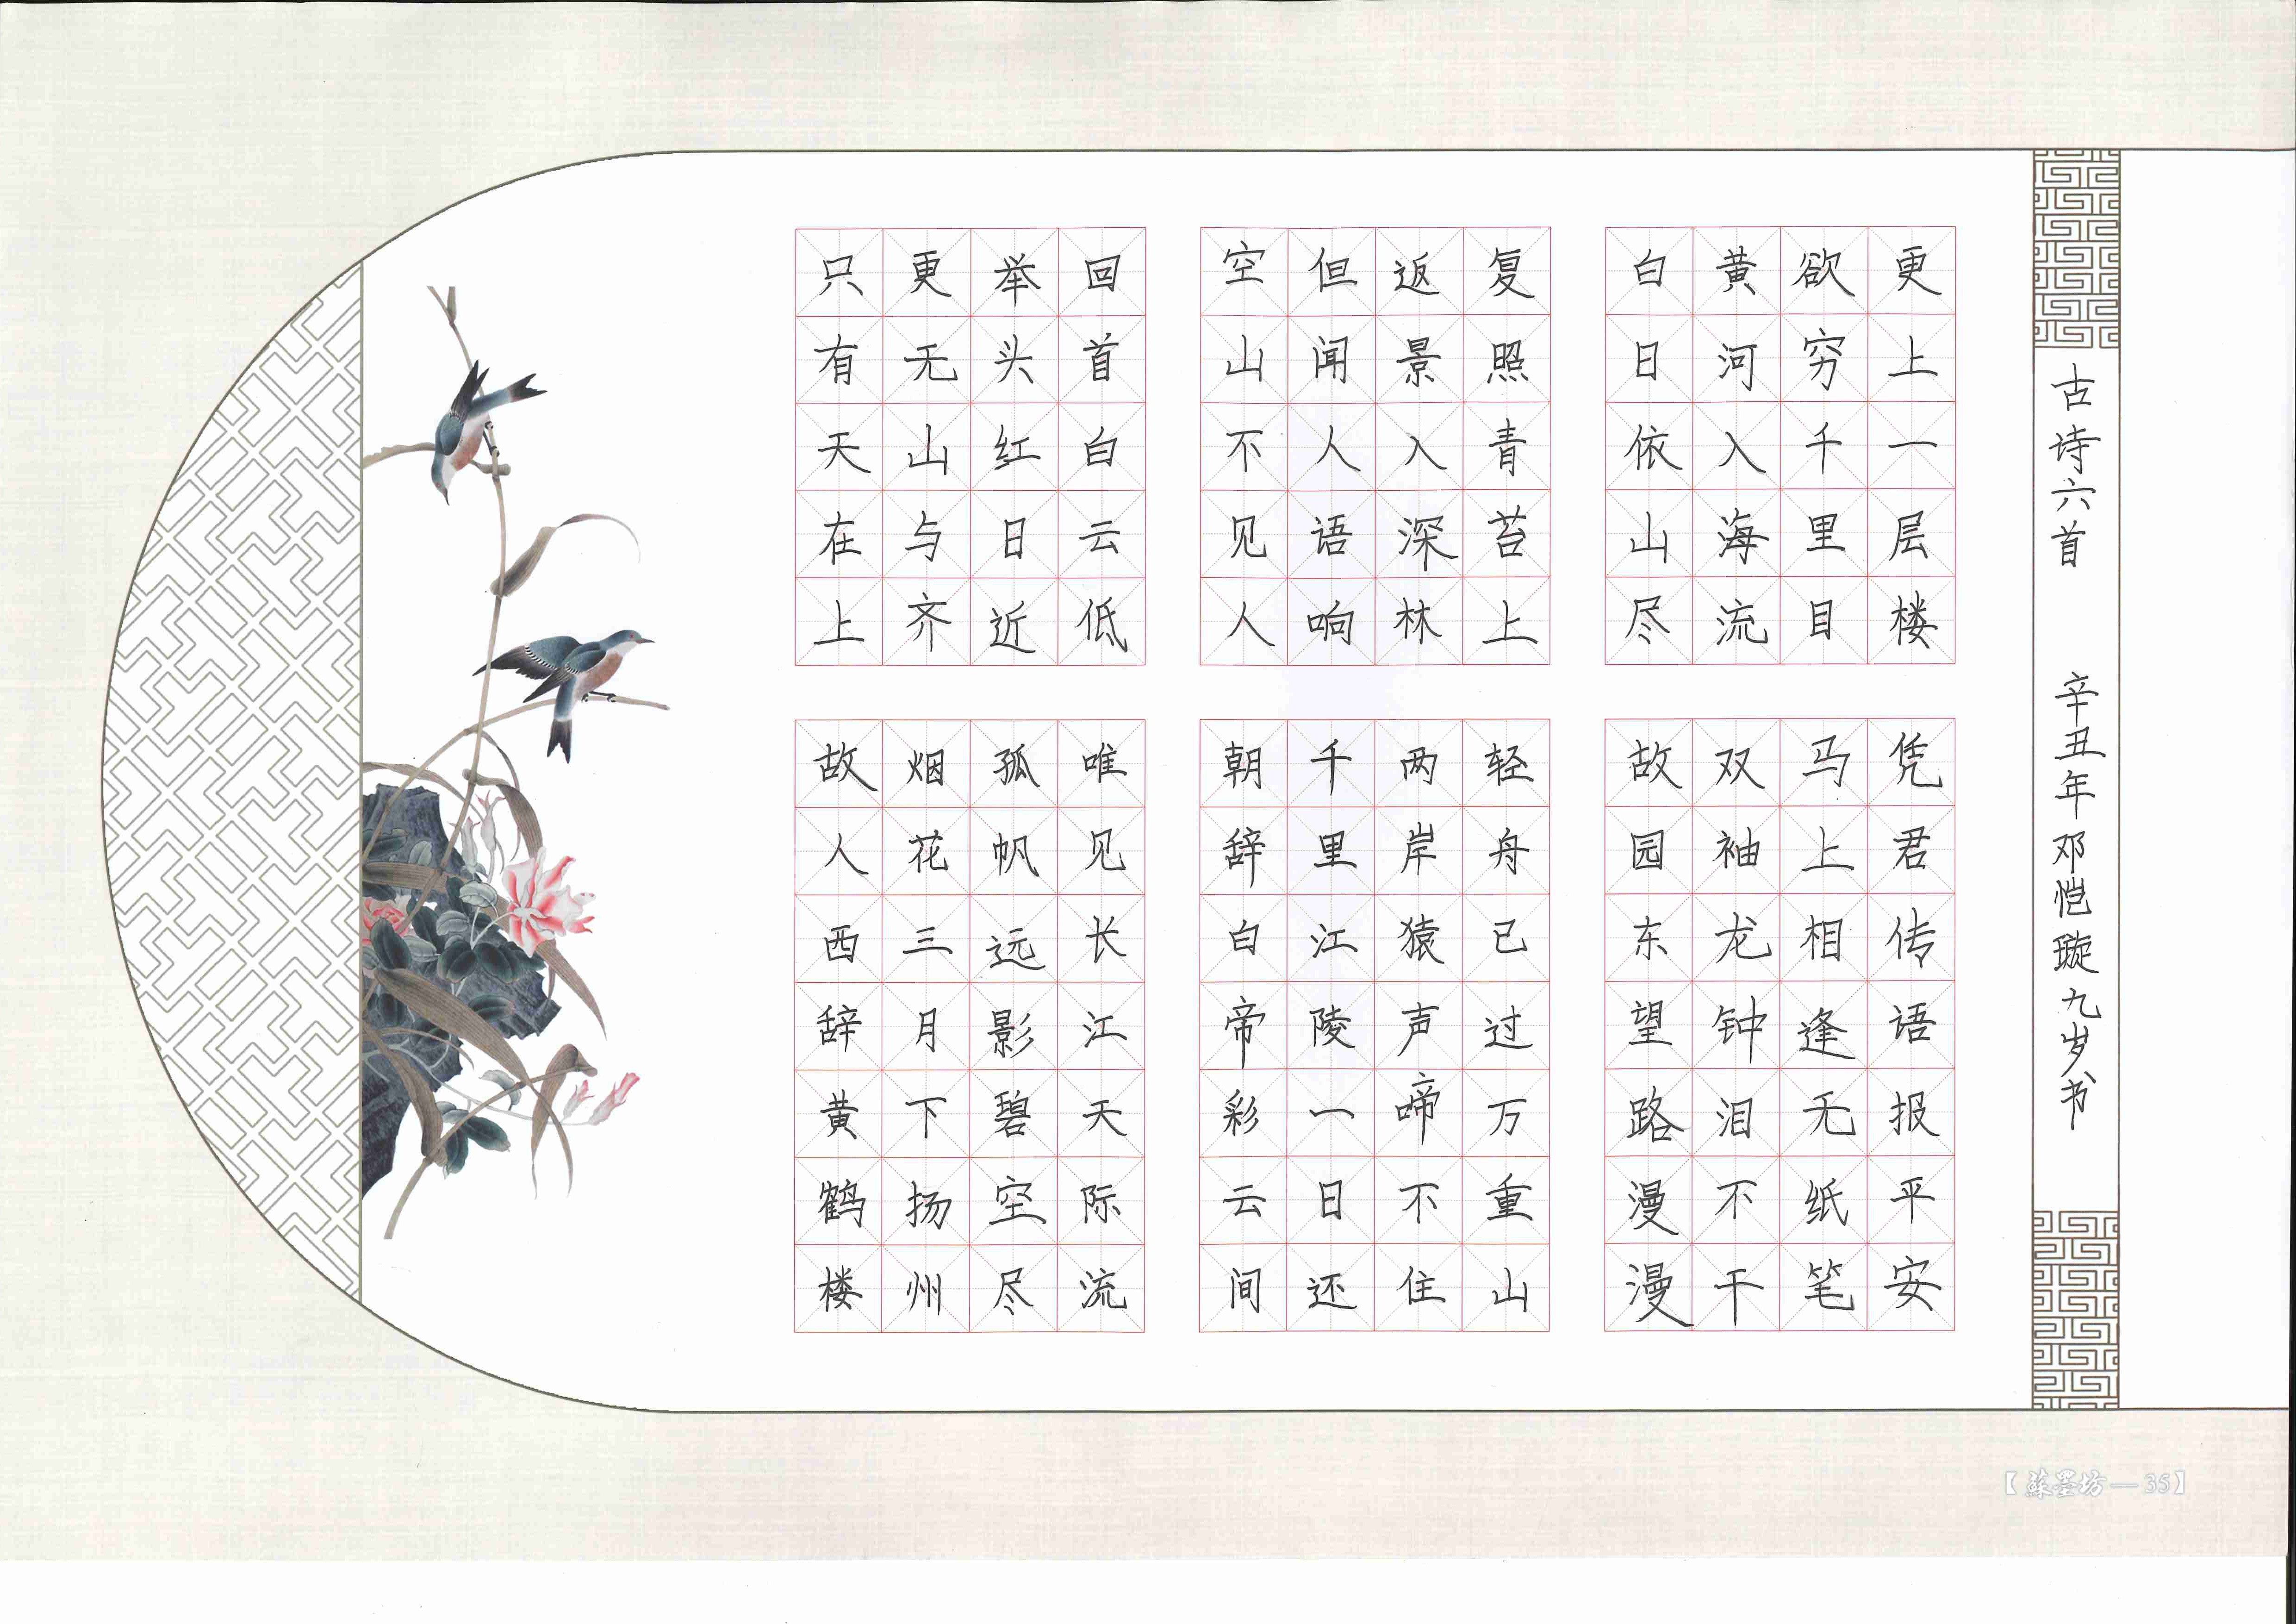 只有天在上
更无山与齐
举头红日近
回首白云低
空山不见人
但闻人语响
返景入深林
复照青苔上
白日依山尽
黄河入海流
欲穷千里目
更上一层楼
故人西辞黄鹤楼
烟花三月下扬州
孤帆远影碧空尽
唯见长江天际流
朝辞白帝彩云间
千里江陵一日还
两岸猿声啼不住
轻舟已过万重山
故园东望路漫漫
双袖龙钟泪不干
马上相逢无纸笔
凭君传语报平安
古诗六首 辛丑年邓恺璇九岁书
【蘇墨坊—35】